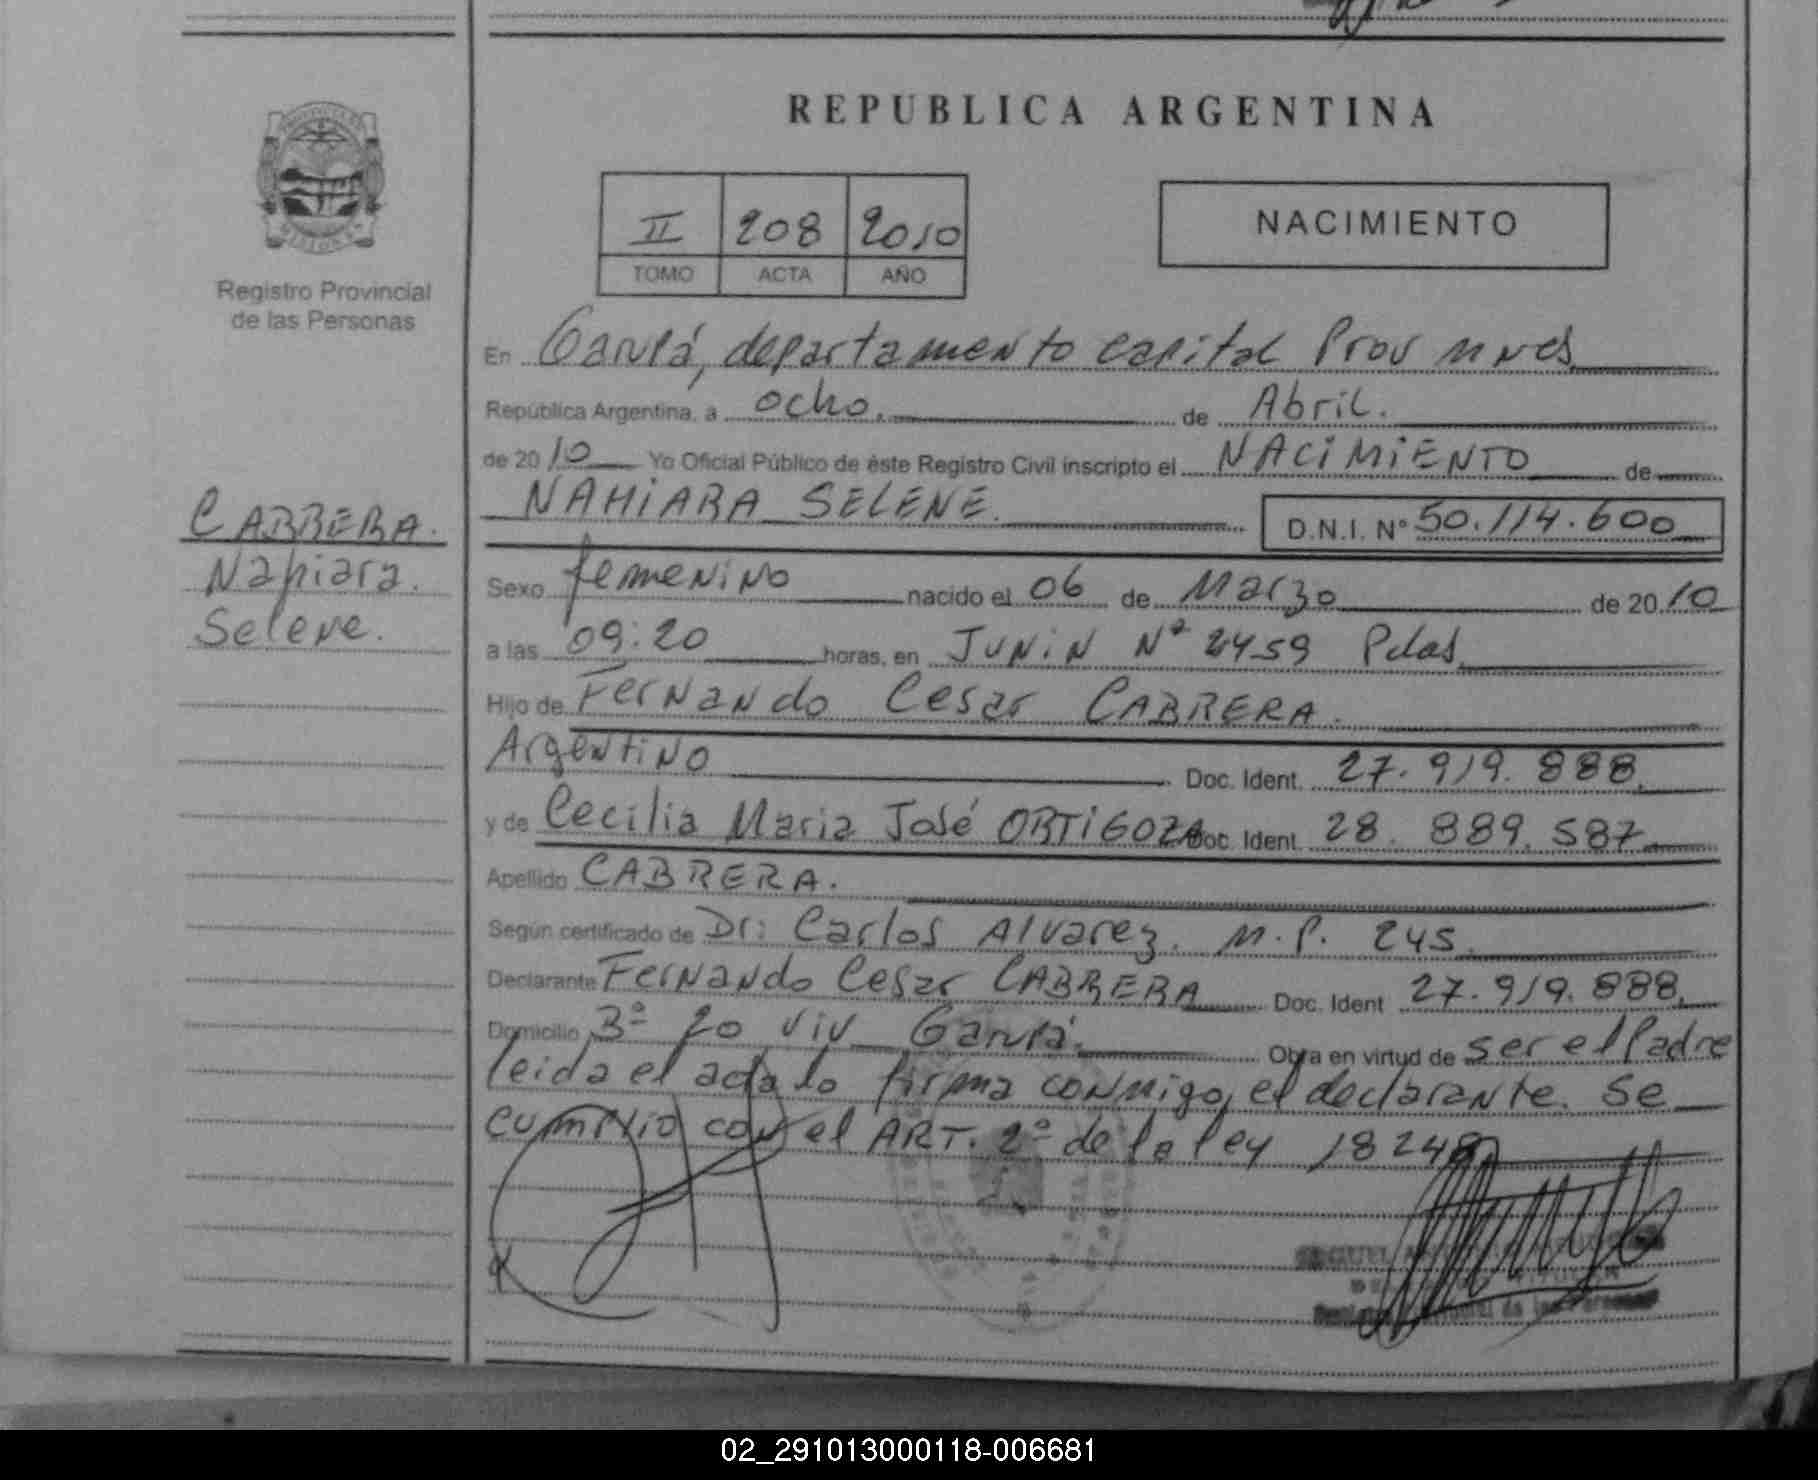 REPUBLICA ARGENTINA
II 208 2010
TOMO ACTA AÑO
NACIMIENTO
PROVINCIA DE
MISIONES
Registro Provincial
de las Personas
CABRERA.
Nahiara.
Selene.
En Garupá, departamento capital Prov Mnes
República Argentina, a ocho. de Abril.
de 2010 Yo Oficial Público de éste Registro Civil inscripto el NACIMIENTO de
NAHIARA SELENE. D.N.I. Nº 50.114.600
Sexo femenino nacido el 06 de Marzo de 2010
a las 09:20 horas, en JUNIN Nº 2459 Pdas
Hijo de Fernando Cesar CABRERA.
Argentino Doc. Ident. 27.919.888.
y de Cecilia Maria José ORTIGOZA Doc. Ident. 28.889.587.
Apellido CABRERA.
Según certificado de Dr: Carlos Alvarez. M.P. 245.
Declarante Fernando Cesar CABRERA Doc. Ident 27.919.888.
Domicilio 3º 20 viv Garupá. Obra en virtud de ser el Padre
leida el acta lo firma conmigo, el declarante. Se
cumplio con el ART. 2º de la ley 18248.
02_291013000118-006681